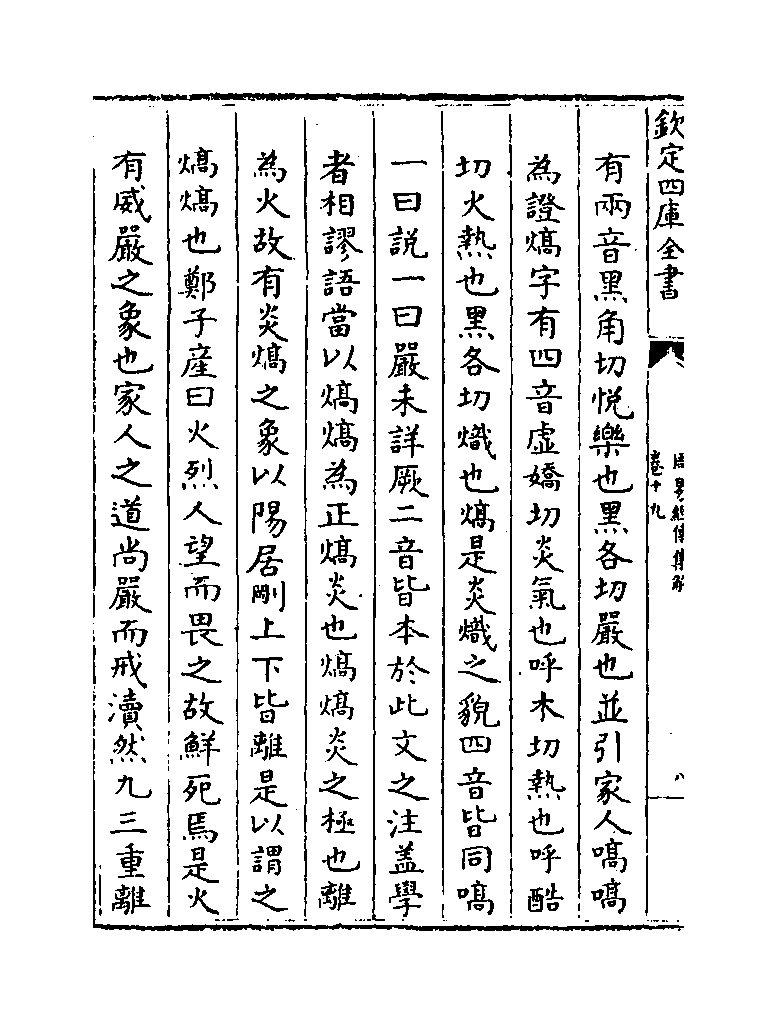 欽定四庫全書
周易經傳集解
卷十九
八
有兩音黑角切悅樂也黑各切嚴也並引家人嗃嗃
為證熇字有四音虛嬌切炎氣也呼木切熱也呼酷
切火熱也黑各切熾也熇是炎熾之貌四音皆同嗃
一曰說一曰嚴未詳厥二音皆本於此文之注盖學
者相謬語當以熇熇為正熇炎也熇熇炎之極也離
為火故有炎熇之象以陽居剛上下皆離是以謂之
熇熇也鄭子產曰火烈人望而畏之故鮮死焉是火
有威嚴之象也家人之道尚嚴而戒瀆然九三重離